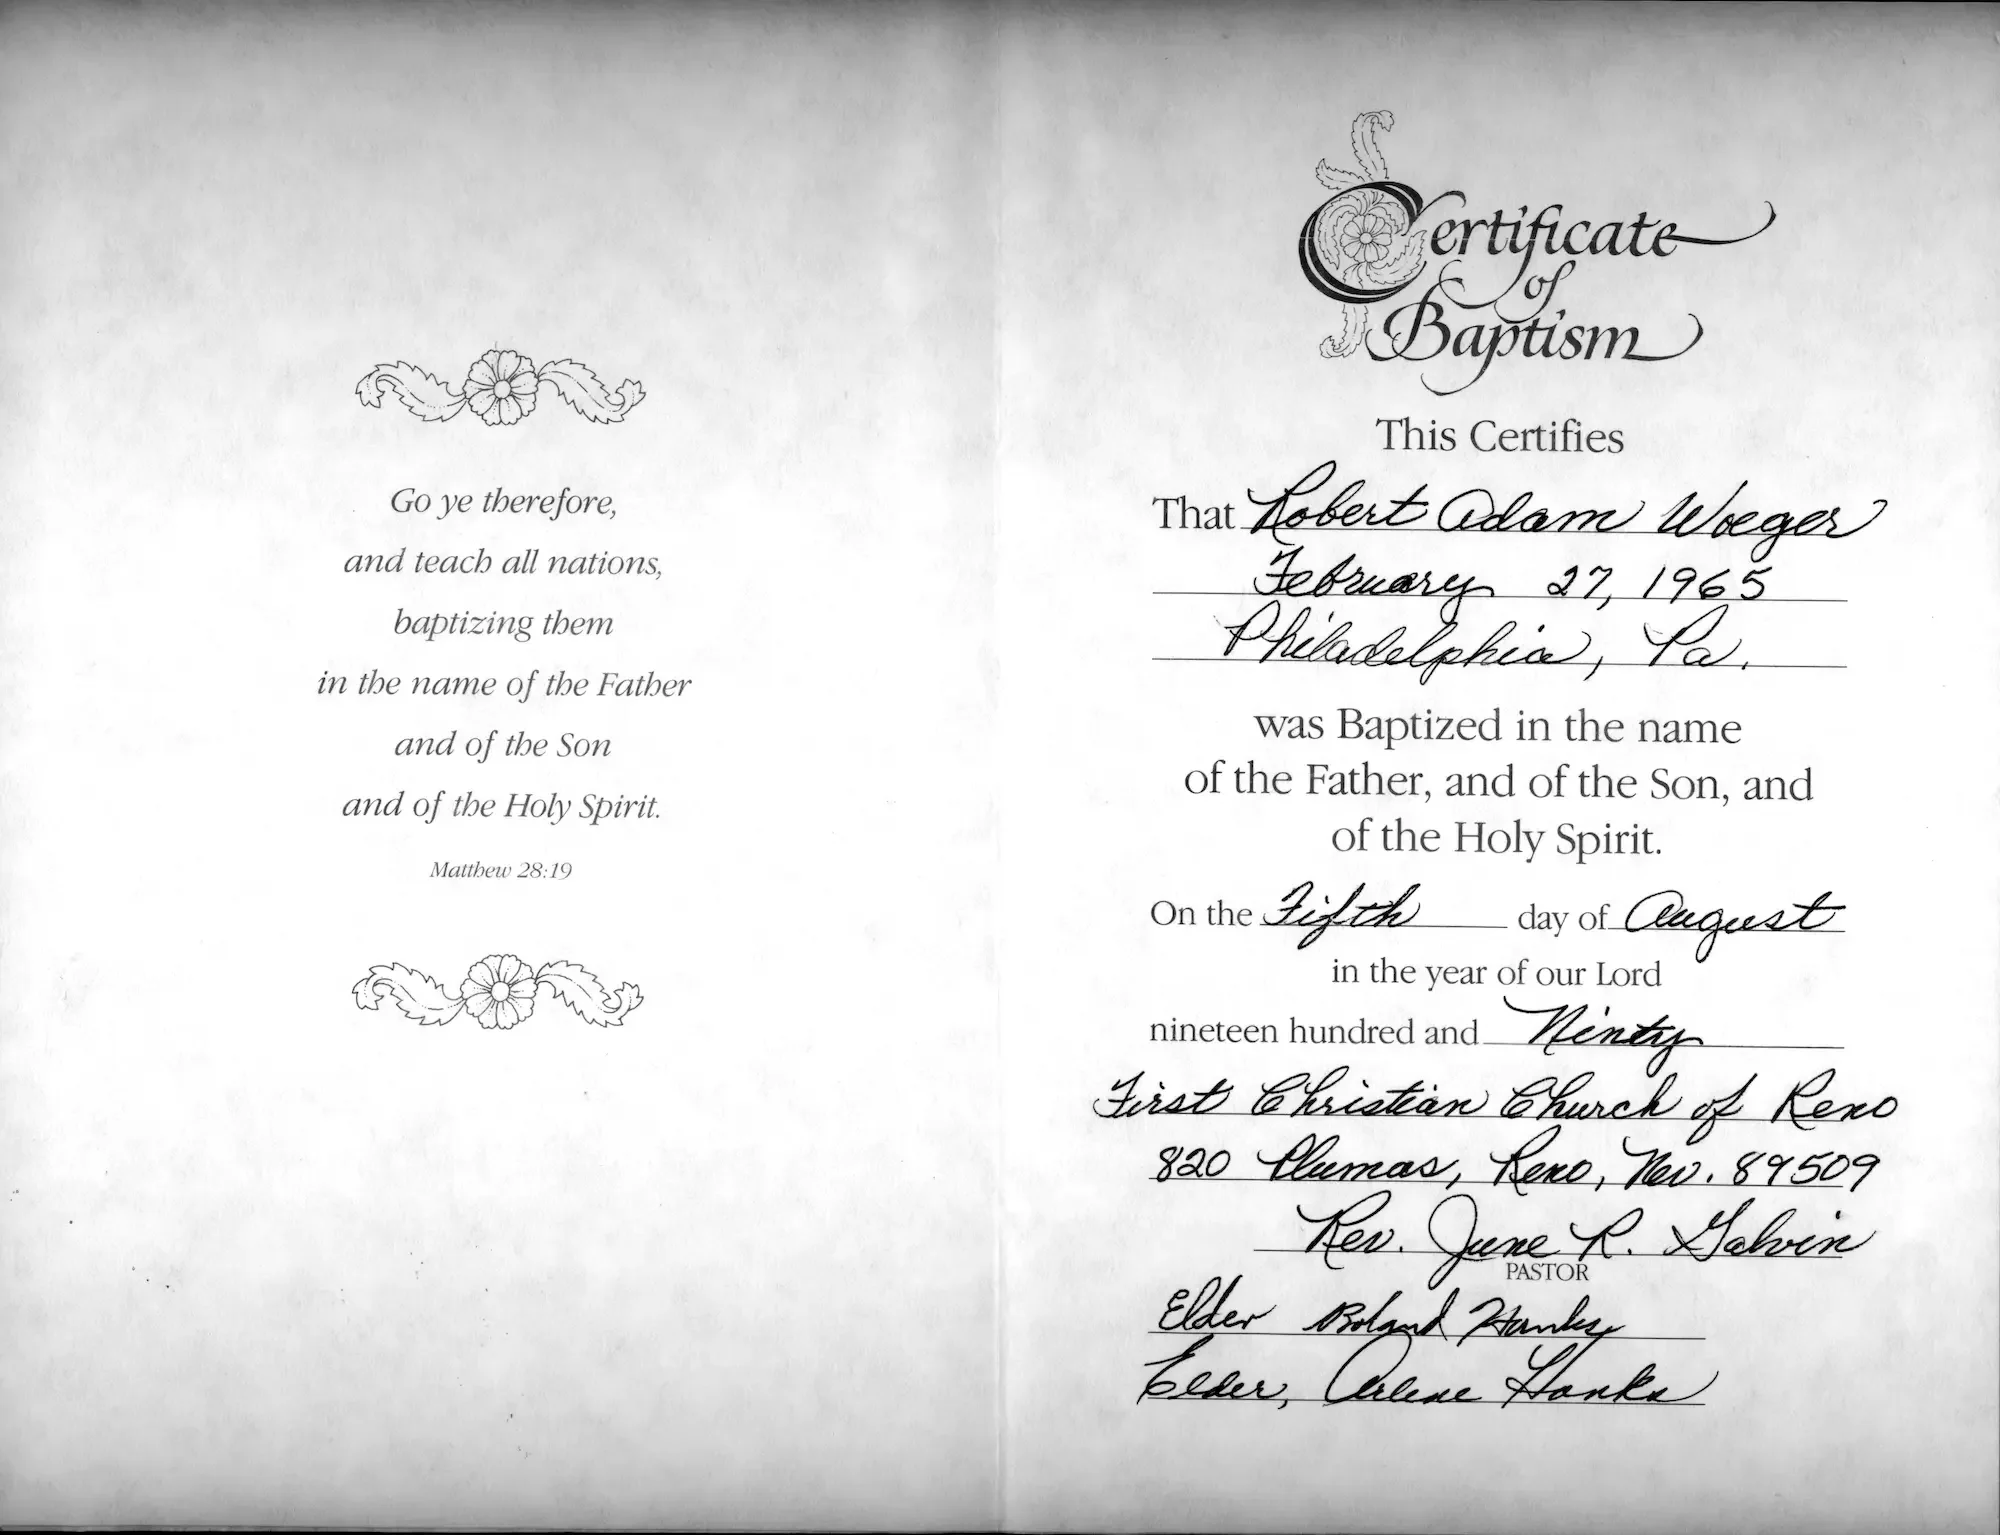 Go ye therefore,
and teach all nations,
baptizing them
in the name of the Father
and of the Son
and of the Holy Spirit.
Matthew 28:19
Certificate
of
Baptism
This Certifies
That Robert Adam Woeger
February 27, 1965
Philadelphia, Pa.
was Baptized in the name
of the Father, and of the Son, and
of the Holy Spirit.
On the Fifth day of August
in the year of our Lord
nineteen hundred and Ninty
First Christian Church of Reno
820 Plumas, Reno, Nev. 89509
Rev. June R. Galvin
PASTOR
Elder Roland Hanks
Elder, Arlene Hanks